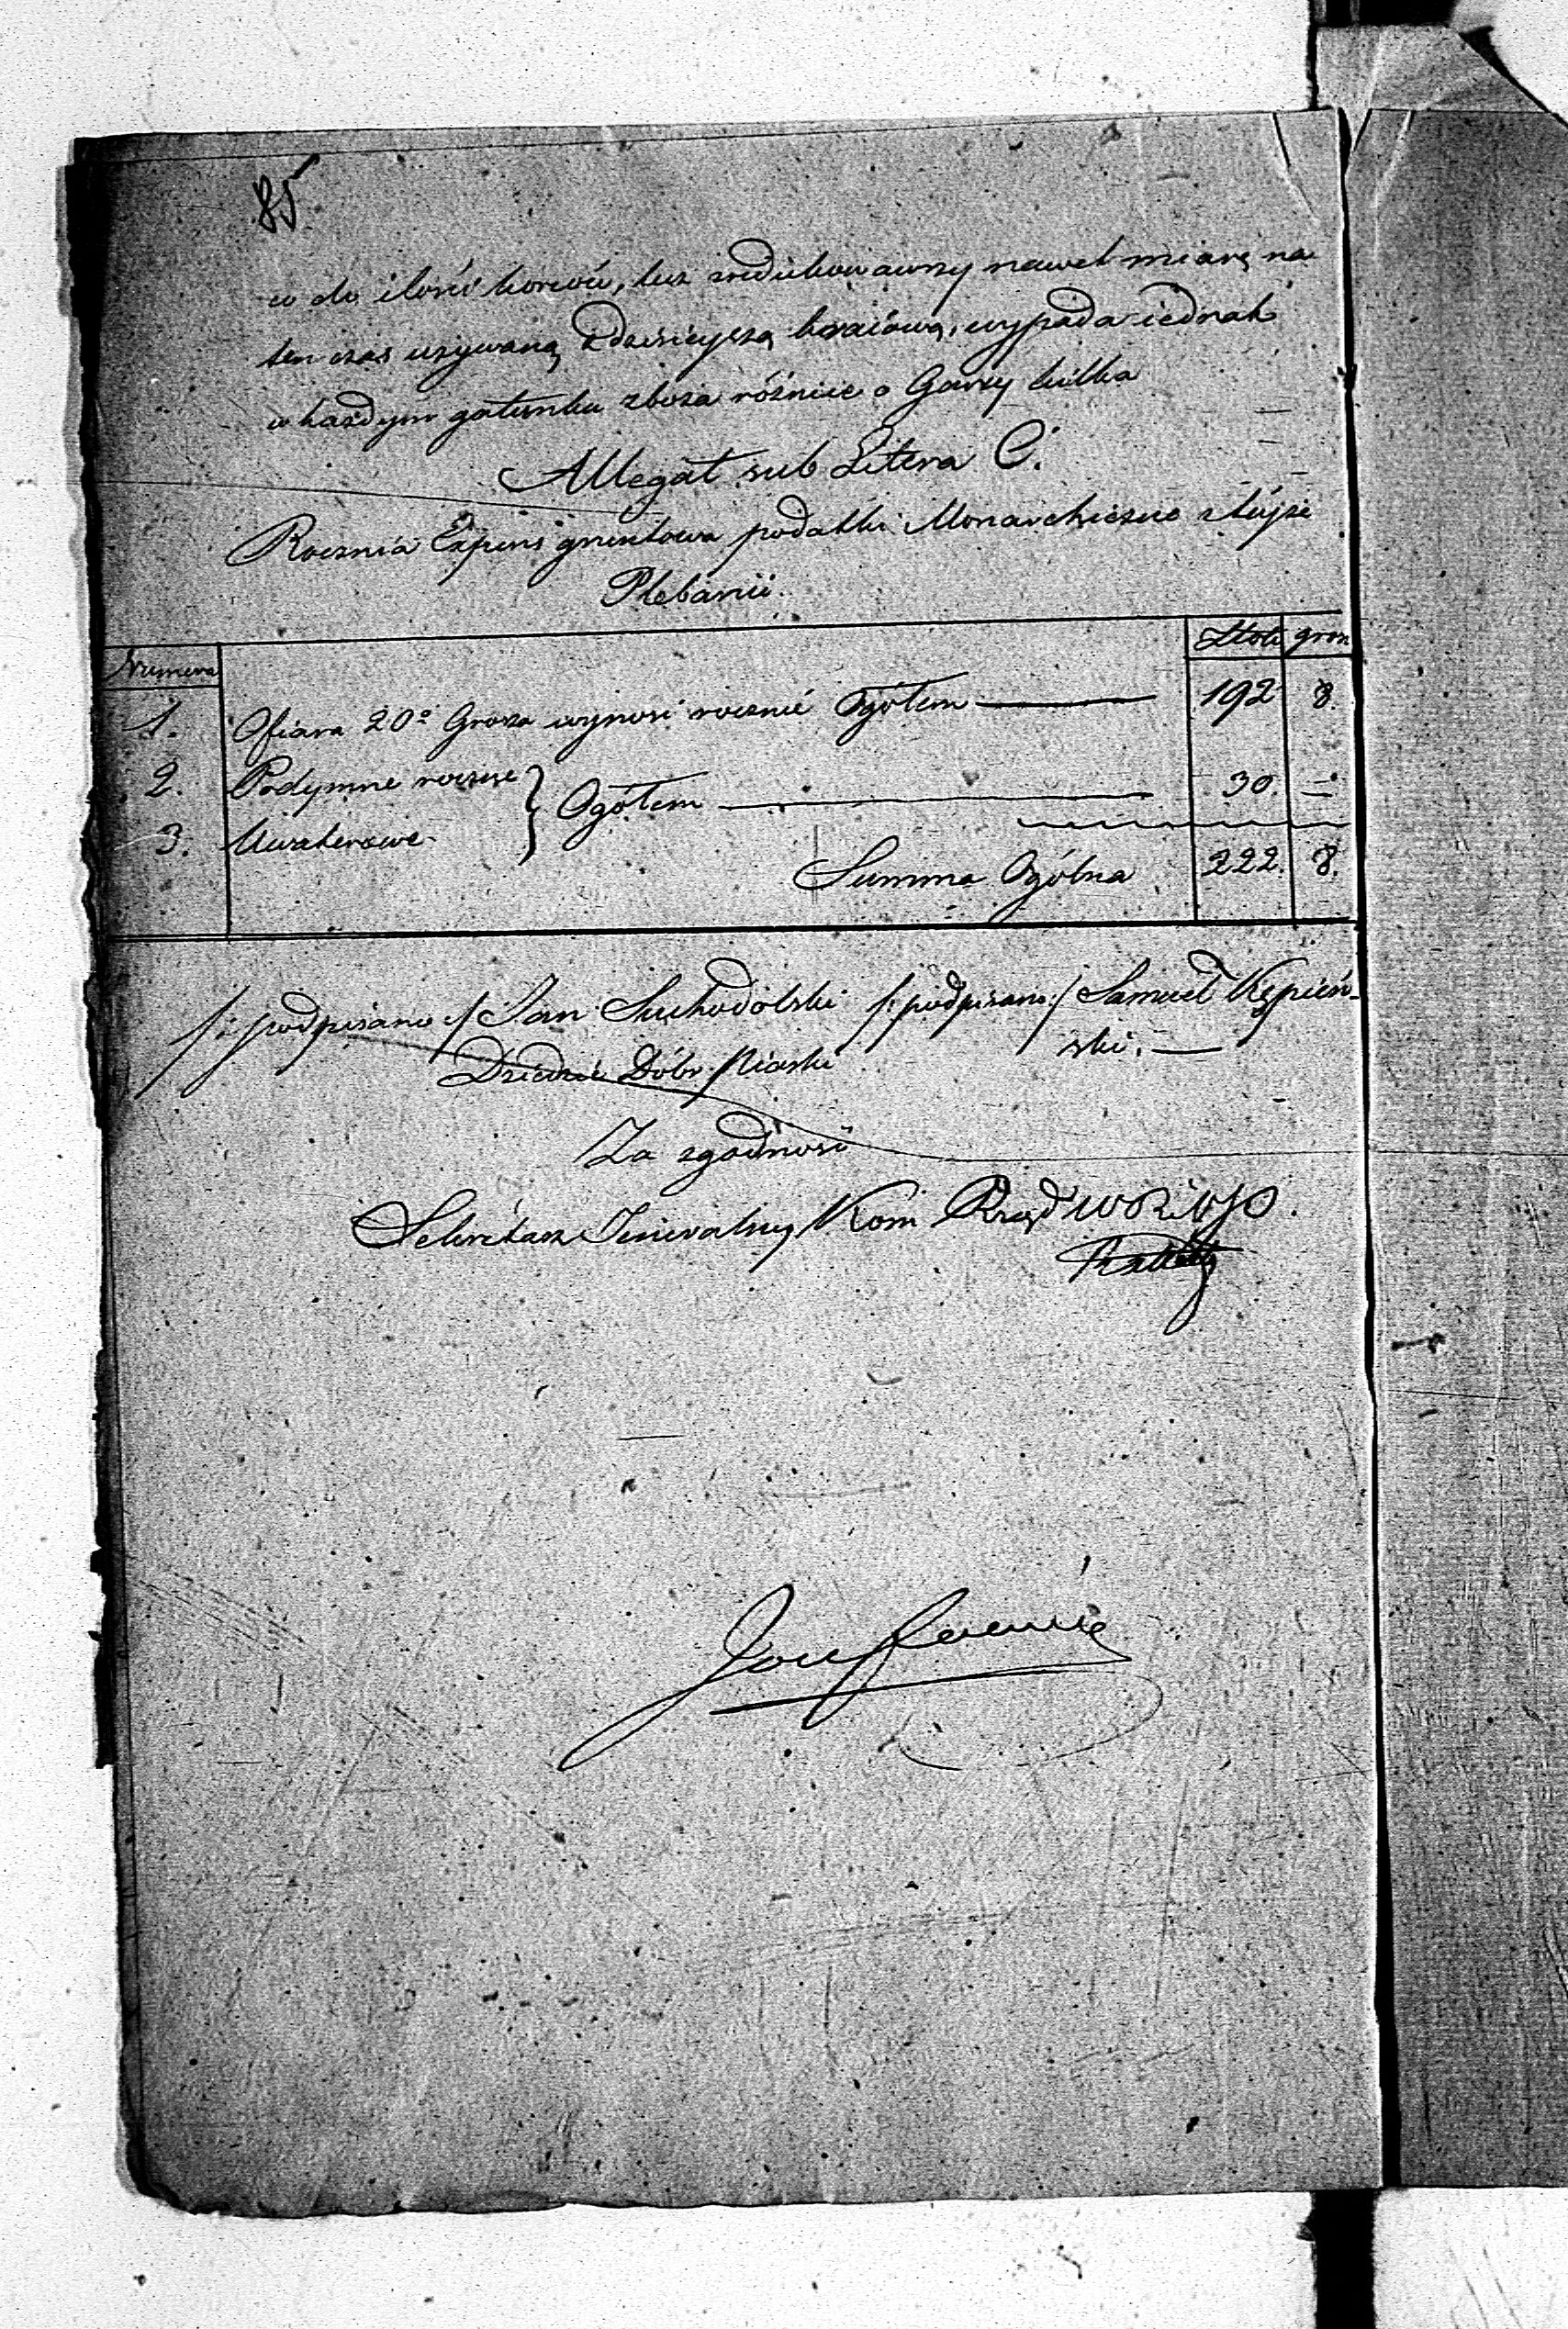 85
w do ilości korców, lecz zredukowawszy nawet miarę na
ten czas używaną z dzisieyszą kraiową, wypada iednak
w każdym gatunku zboża różnice o Garcy kilka
Allegat sub Litera C.
Roczna Expens gruntowa podatki Monarchiczne z tújże
Plebanii.
Numera Złote grosz
1. Ofiara 20º Grosza wynosi rocznié Ogółem 192 8.
2. Podymne roczne } Ogółem 30. —
3. Kwaterowe
Summa Ogólna 222. 8.
/: podpisano :/ Jan Suchodolski /: podpisano :/ Samuel Kępień-
ski. —
Dziedzic Dóbr Piaski
Za zgodność
Sekretarz Jeneralny Kom Rząd W R i O P.